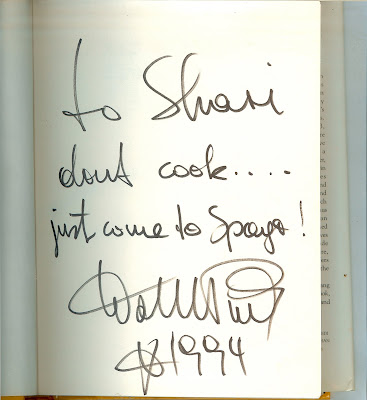 to Shari
dont cook....
just come to Spago!
1994